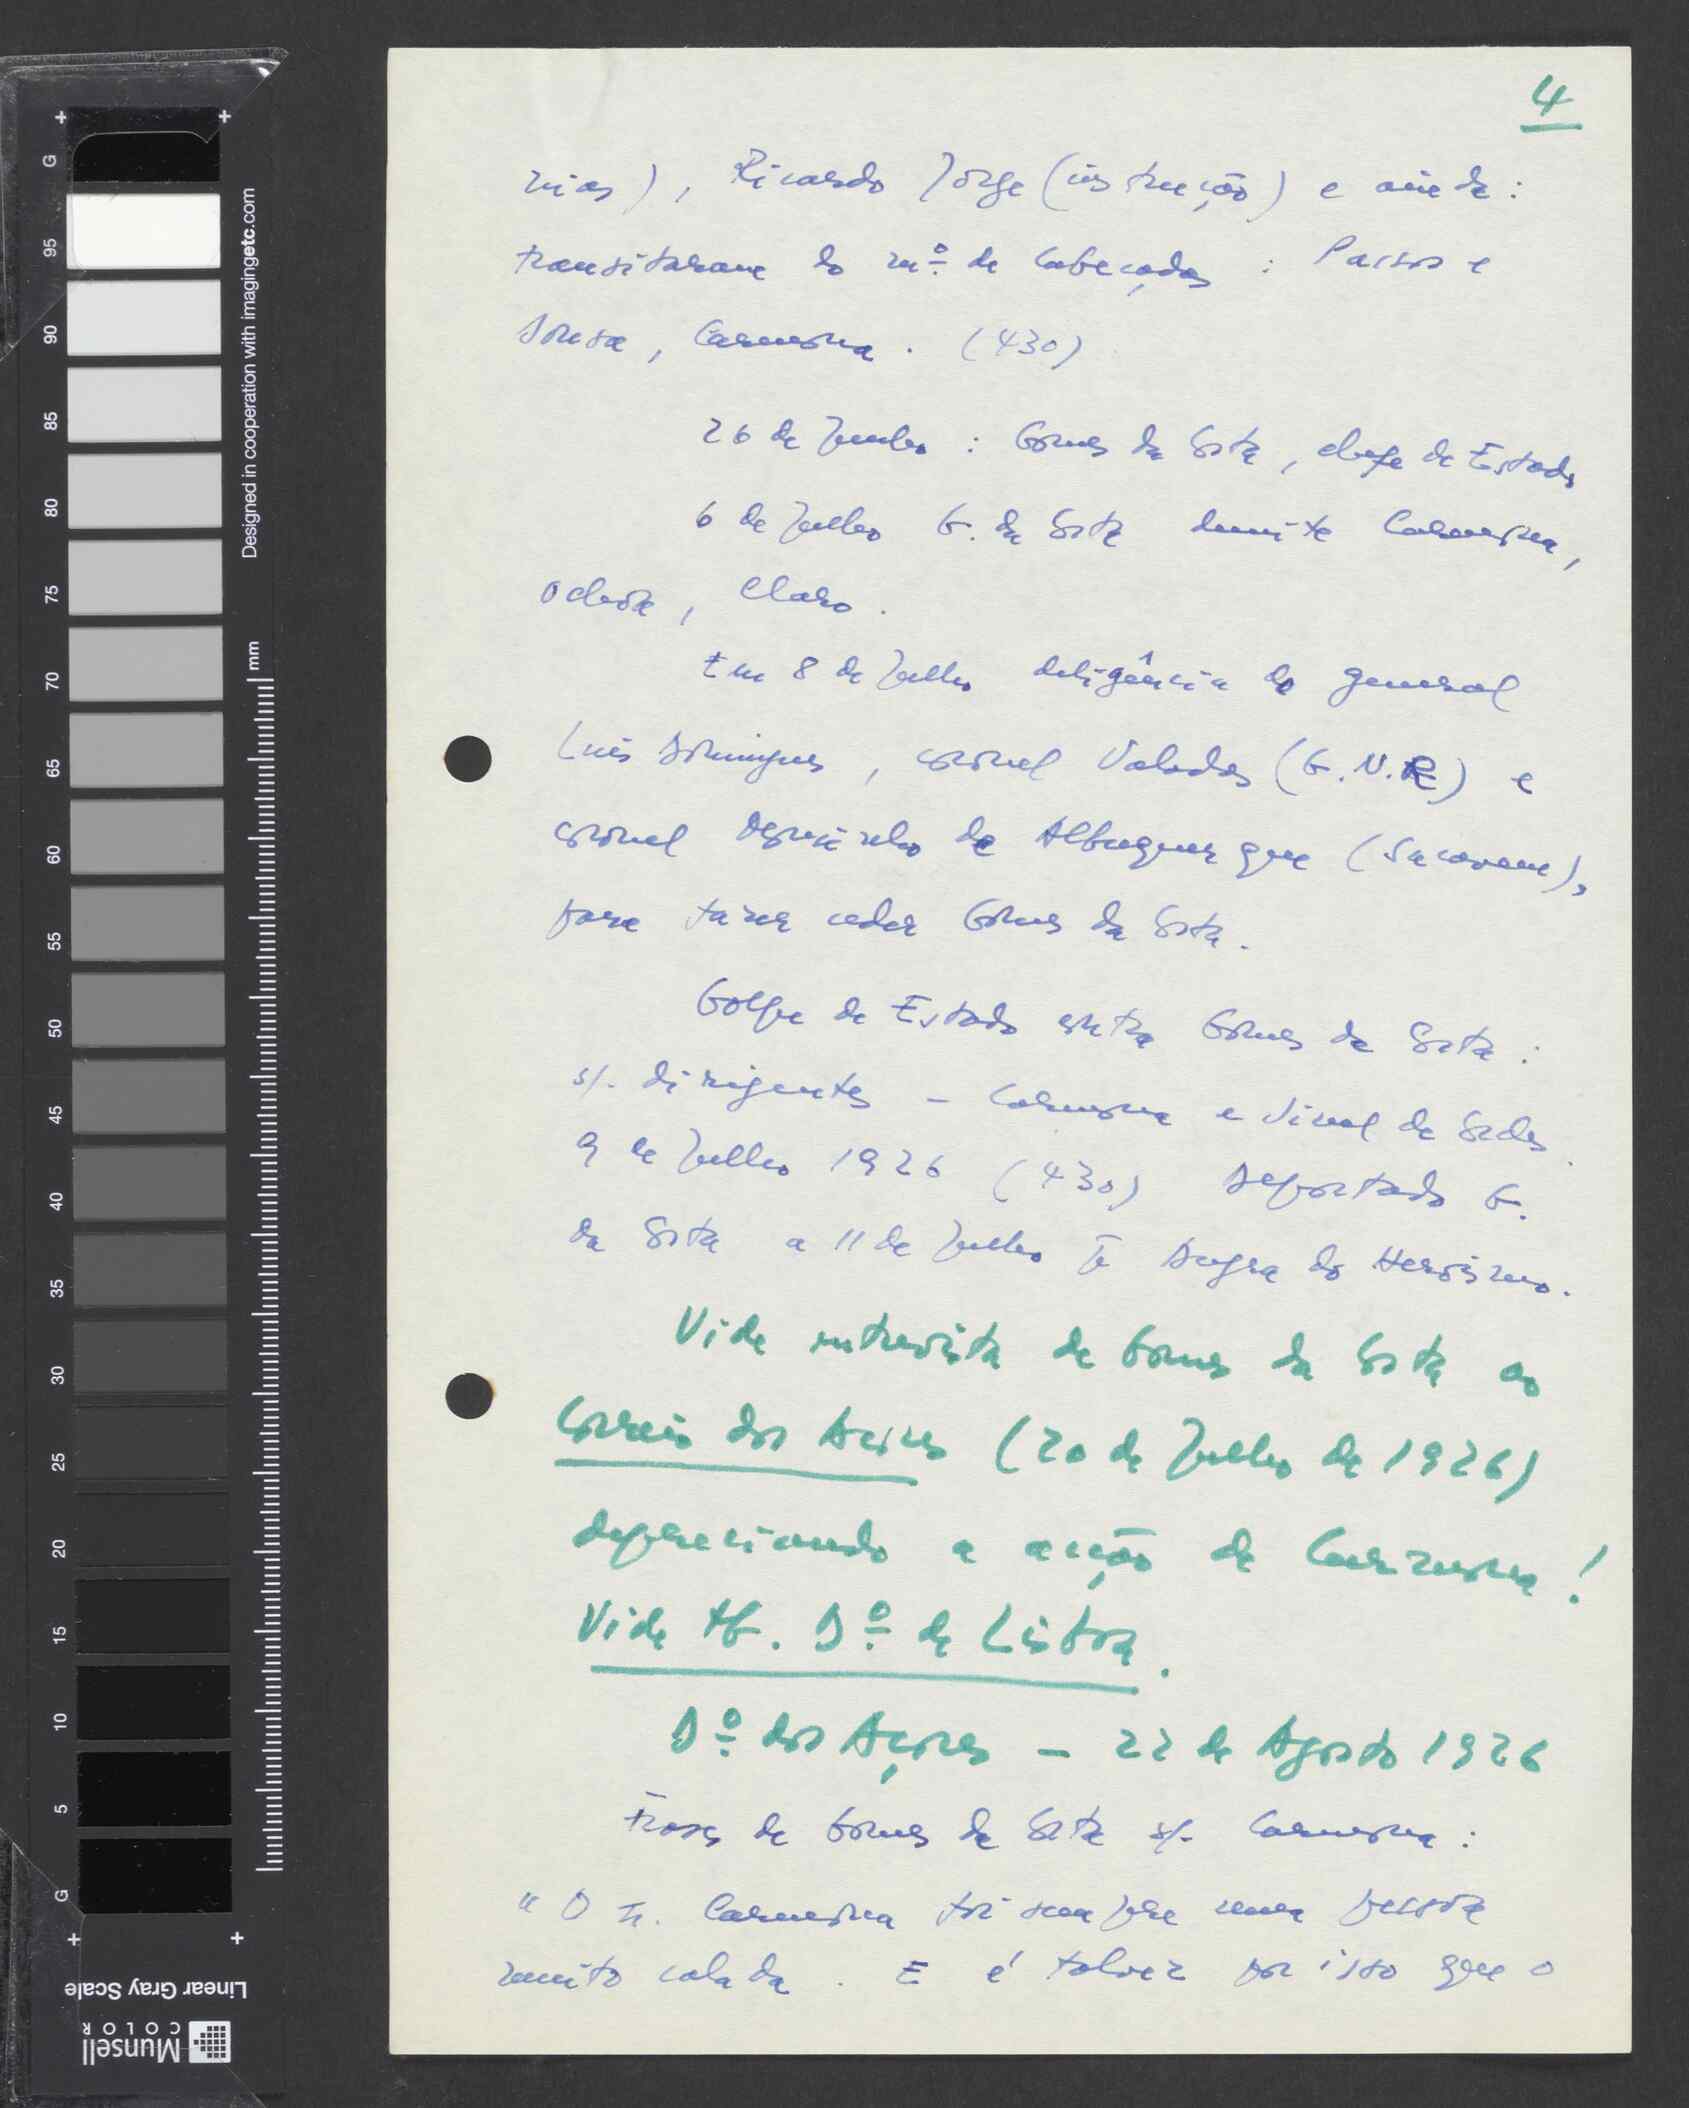 4
nias), Ricardo Jorge (instrução) e ainda:
transitaram do mº de Cabeçadas: Passos e
Sousa, Carmona. (430)
26 de Junho: Gomes da Costa, chefe de Estado
6 de Julho G. da Costa demite Carmona,
Ochoa, Claro.
Em 8 de Julho deligência do general
Luís Domingues, coronel Valadas (G.N.R) e
coronel Agostinho de Albuquerque (Sacavem),
para fazer ceder Gomes da Costa.
Golpe de Estado contra Gomes da Costa:
s/. dirigentes – Carmona e Sinel de Cordes.
9 de Julho 1926 (430) Deportado G.
da Costa a 11 de Julho Angra do Heroísmo.
Vide entrevista de Gomes da Costa ao
Correio dos Açores (20 de Julho de 1926)
depreciando a acção de Carmona!
Vide tb. Dº de Lisboa.
Dº dos Açores – 22 de Agosto 1926
Frases de Gomes da Costa s/. Carmona:
"O Carmona foi sempre uma pessoa
muito calada. E é talvez por isso que o
Designed in cooperation with imagingetc.com
mm
G
95
90
85
80
75
70
65
60
55
50
45
40
35
30
25
20
15
10
5
G
Linear Gray Scale
Munsell
COLOR